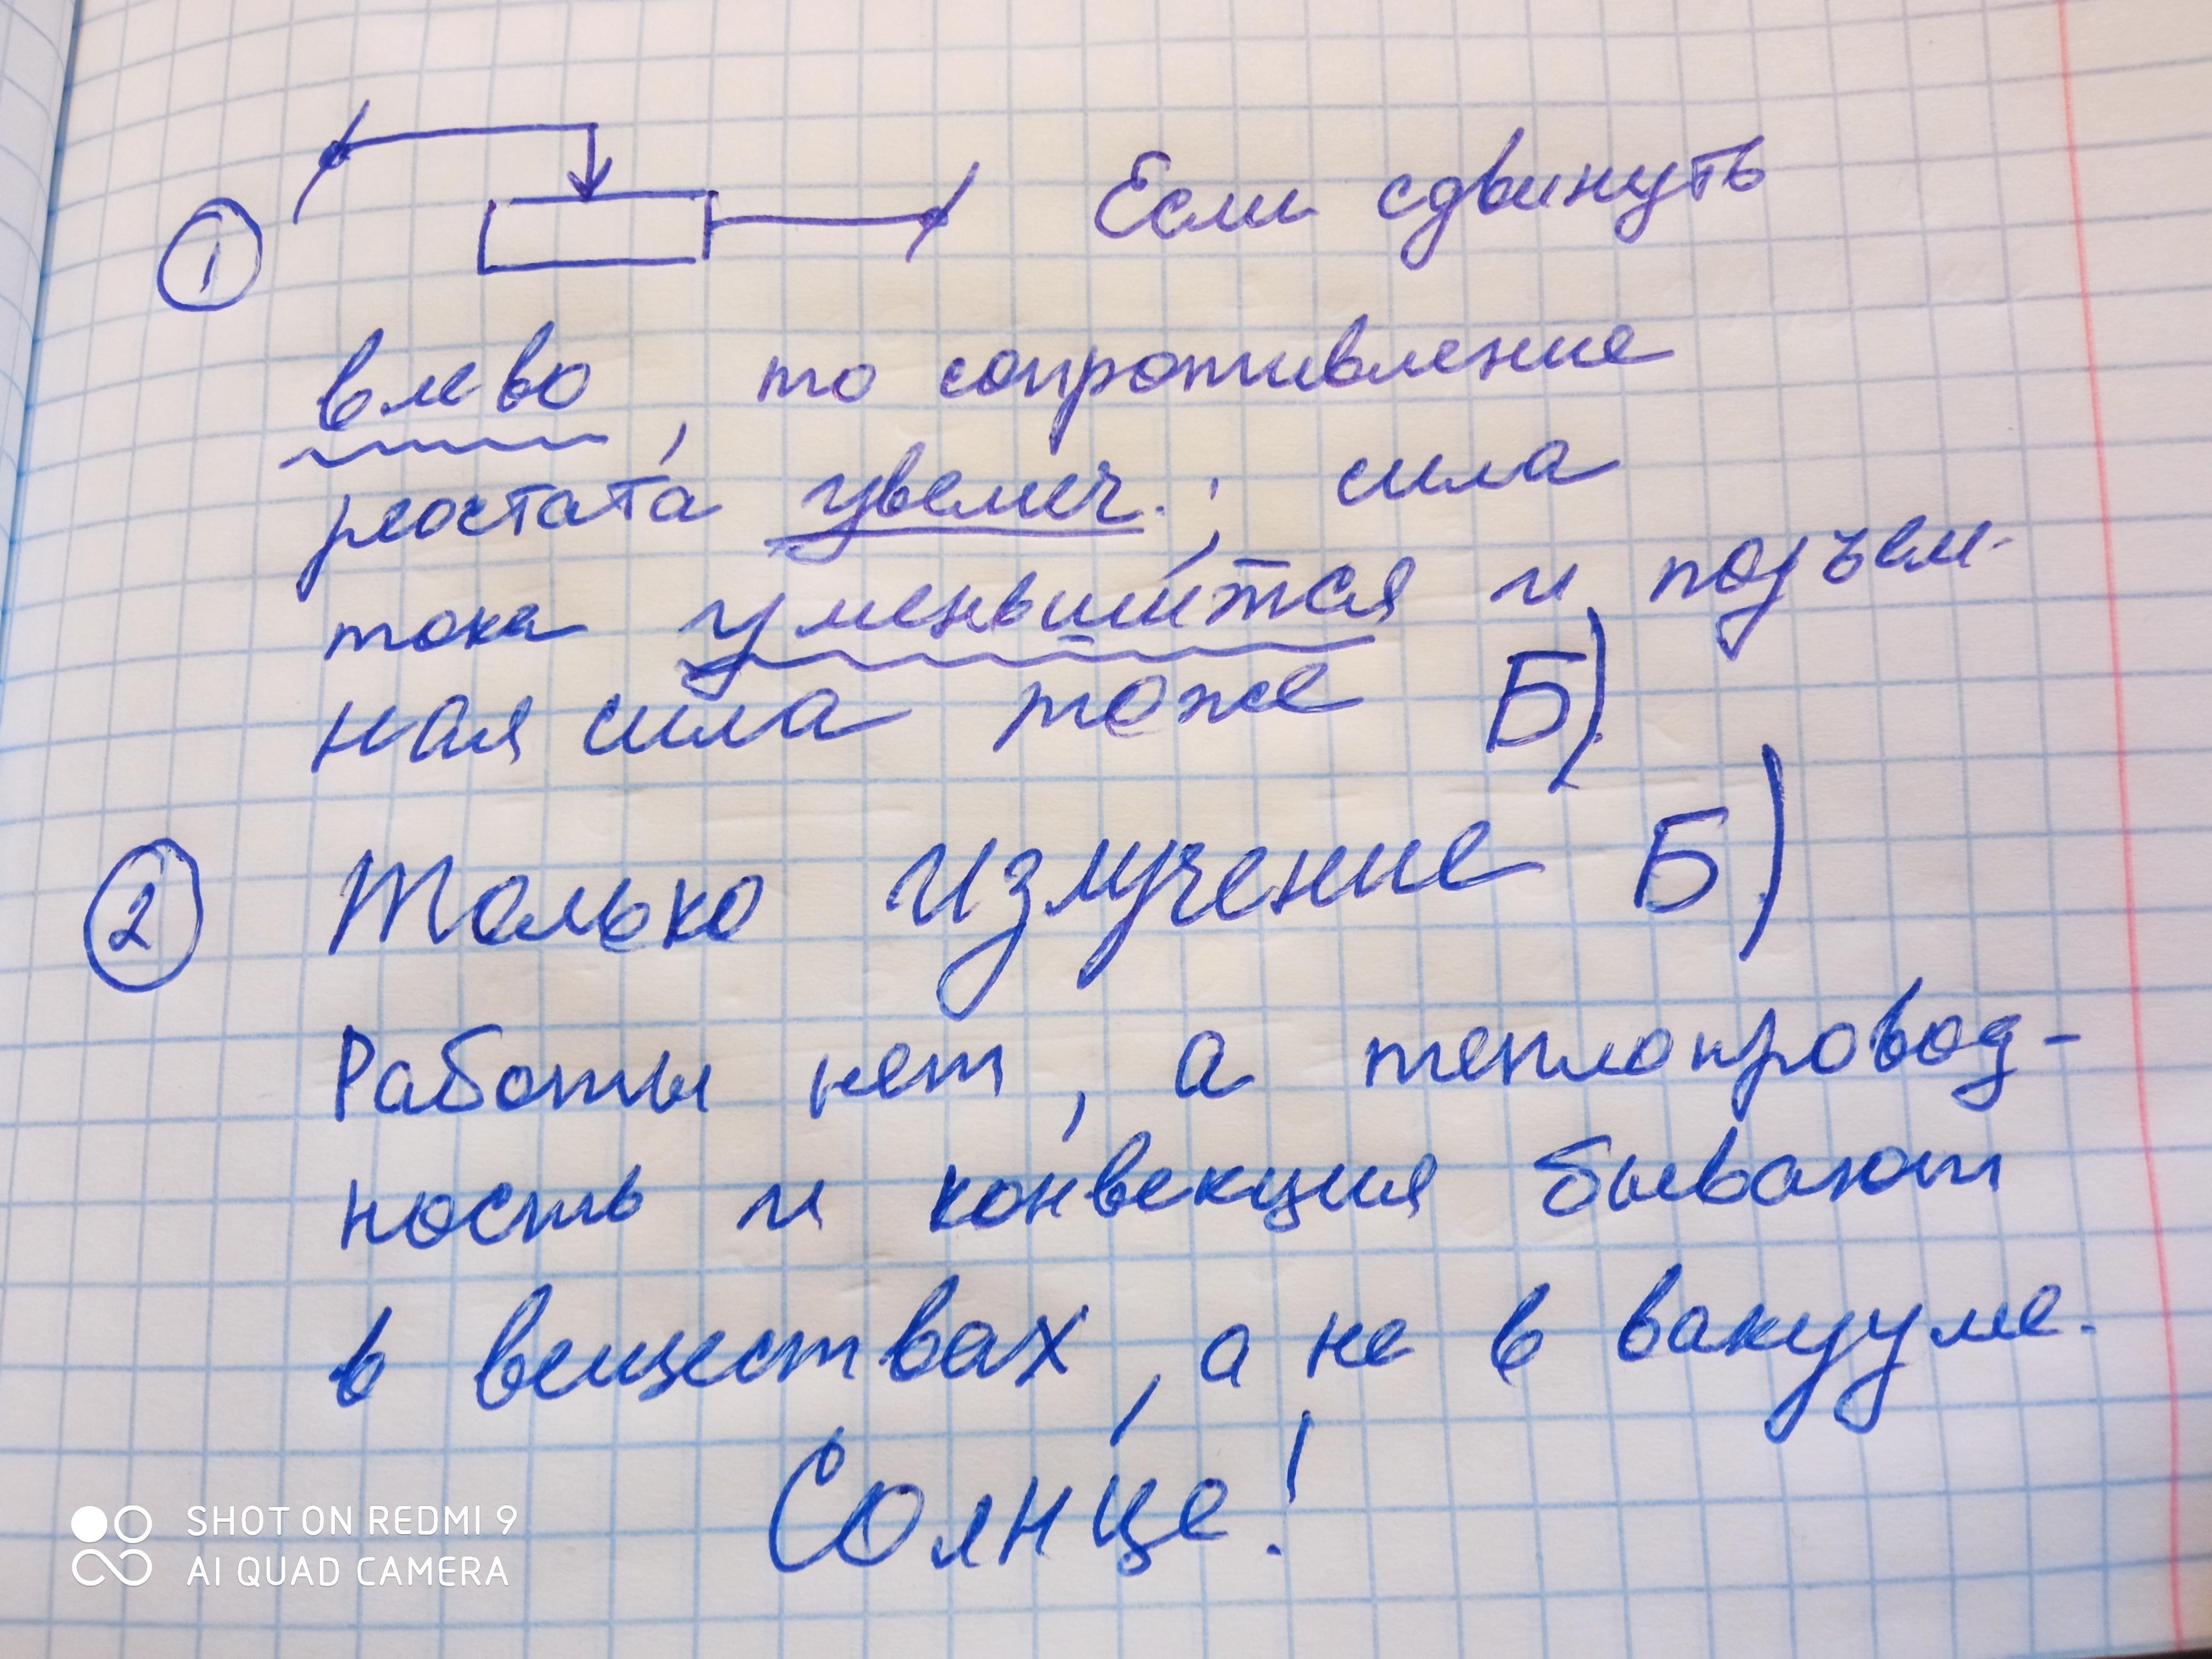 ① Если сдвинуть
влево, то сопротивление
реостата увелич.; сила
тока уменьшится и подъем-
ная сила тоже Б)
② Только излучение Б)
Работы нет, а теплопровод-
ность и конвекция бывают
в веществах, а не в вакууме.
Солнце!
SHOT ON REDMI 9
AI QUAD CAMERA